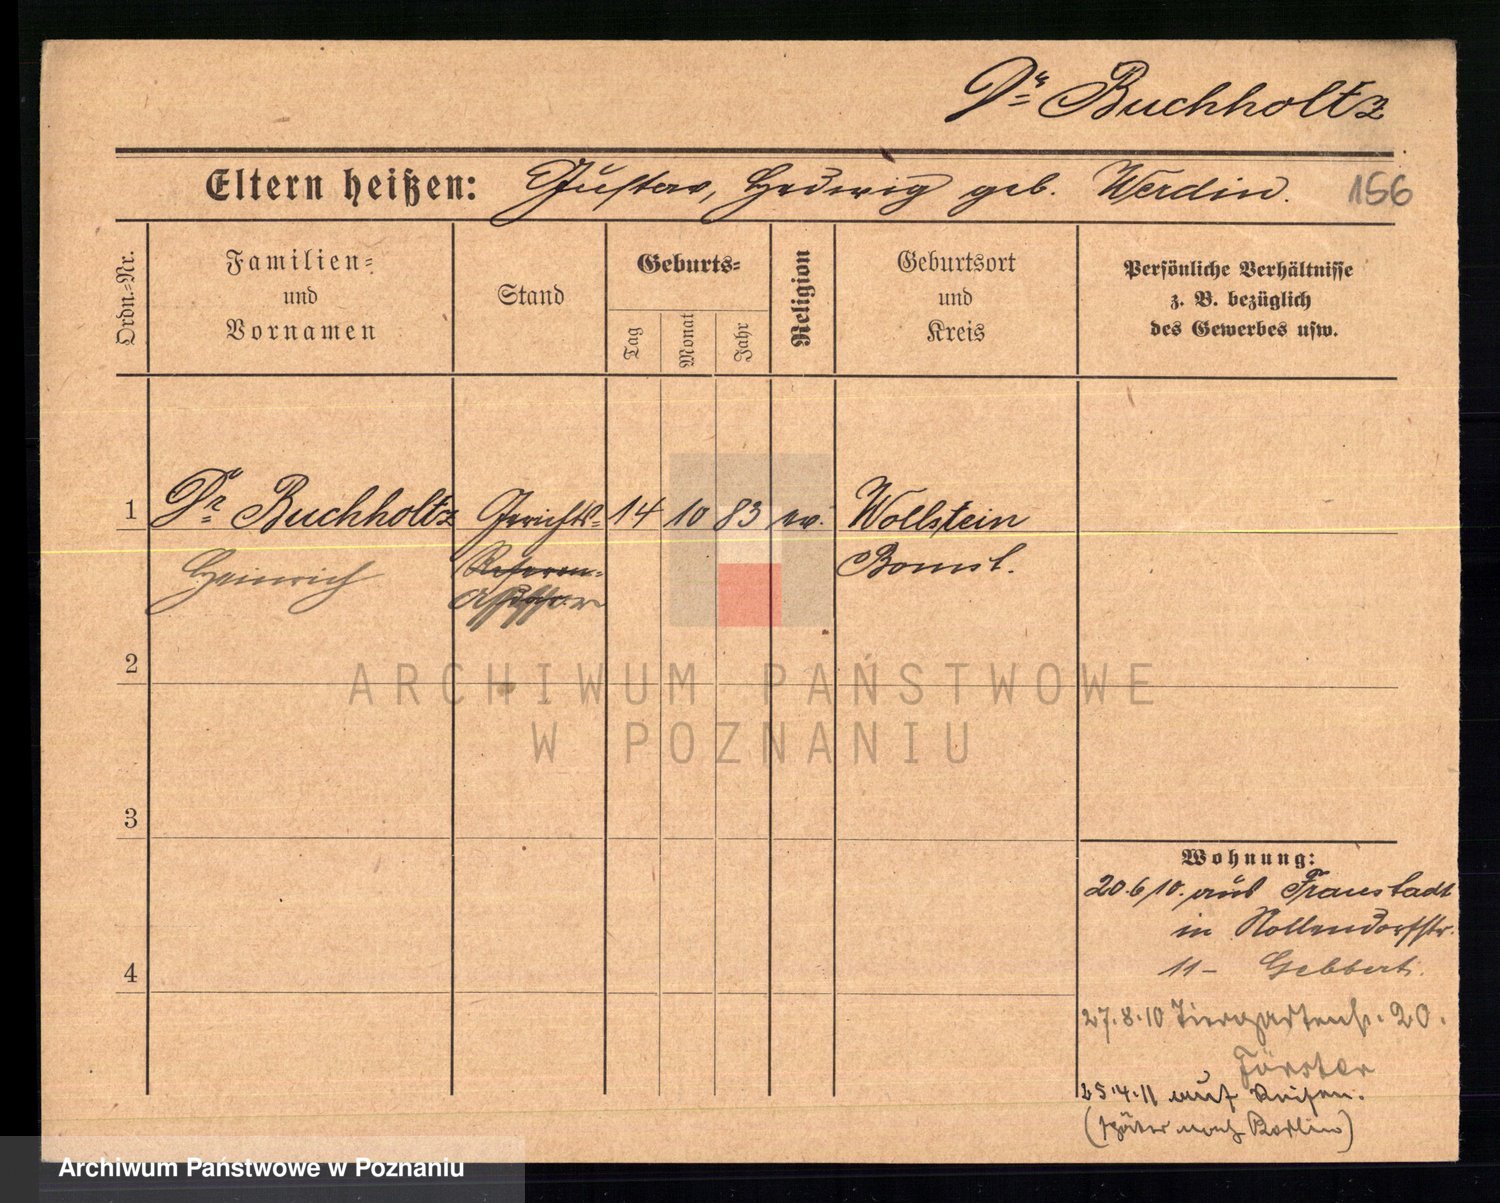 Dr Buchholtz
Eltern heißen: Gustav, Hedwig geb. Werdin.
156
Ordn.-Nr.
Familien-
und
Vornamen
Stand
Geburts-
Tag
Monat
Jahr
Religion
Geburtsort
und
Kreis
Persönliche Verhältnisse
z. B. bezüglich
des Gewerbes usw.
1 Dr Buchholtz Gerichts- 14 10 83 ev. Wollstein
Heinrich Referen- Bomst.
Assessor
2
3
4
Wohnung:
20.6.10. aus Fraustadt
in Nollendorfstr.
11 - Gebbert.
27.8.10 Tiergartenstr. 20.
Förster
25.4.11 auf Reisen.
(später nach Berlin)
ARCHIWUM PAŃSTWOWE
W POZNANIU
Archiwum Państwowe w Poznaniu